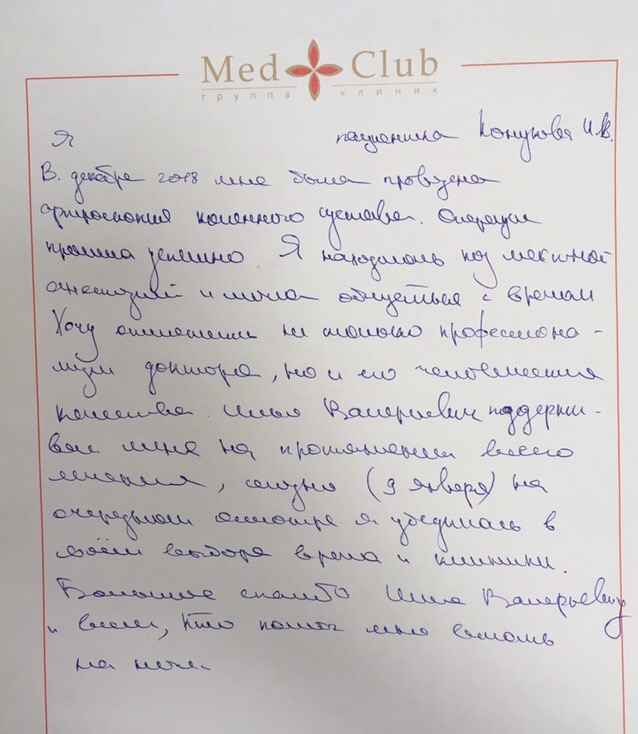 Med Club
группа клиник
Я пациентка Конукова И.В.
В. декабре 2018 мне была проведена
артроскопия коленного сустава. Операция
прошла успешно. Я находилась под местной
анестезией и могла общаться с врачом
Хочу отметить не только профессиона-
лизм доктора, но и его человеческие
качества. Илья Валерьевич поддержи-
вал меня на протяжении всего
лечения, сегодня (9 января) на
очередном осмотре я убедилась в
своём выборе врача и клиники.
Большое спасибо Илье Валерьевичу
и всем, кто помог мне встать
на ноги